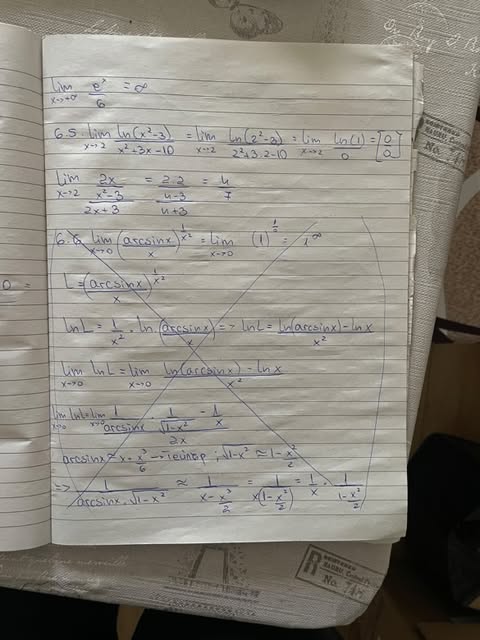 lim x→+∞ e^x/6 = ∞
6.5 lim x→2 ln(x²-3)/(x²+3x-10) = lim x→2 ln(2²-3)/(2²+3.2-10) = lim x→2 ln(1)/0 = [0/0]
lim x→2 (2x/(x²-3))/(2x+3) = (2.2/(4-3))/(4+3) = 4/7
6.6 lim x→0 (arcsinx/x)^(1/x²) = lim x→0 (1)^(1/0) = 1^∞
0 =
L = (arcsinx/x)^(1/x²)
lnL = 1/x² . ln(arcsinx/x) => lnL = (ln(arcsinx) - lnx)/x²
lim x→0 lnL = lim x→0 (ln(arcsinx) - lnx)/x²
lim x→0 lnL = lim x→0 (1/arcsinx . 1/√(1-x²) - 1/x)/2x
arcsinx ≈ x + x³/6 → Тейлър ; √(1-x²) ≈ 1 - x²/2
=> 1/(arcsinx . √(1-x²)) ≈ 1/(x - x³/2) = 1/(x(1 - x²/2)) = 1/x . 1/(1 - x²/2)
R
No.